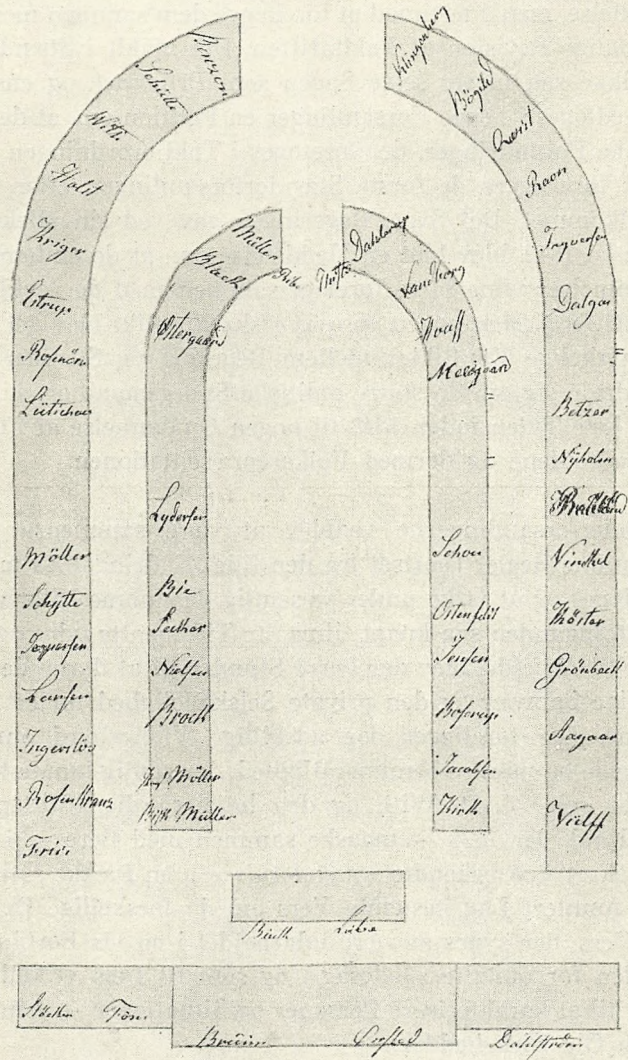 Benzon
Schütte
With
Holst
Kriger
Estrup
Rosenörn
Lüttichau
Möller
Schytte
Jespersen
Larsen
Ingerslev
Rosenkrantz
Friis
Müller
Black
Ostergaard
Lydersen
Bie
Secher
Nielsen
Brock
Möller
Müller
Dahlerup
Landberg
Hauff
Mælsgaard
Schou
Ostenfeldt
Jensen
Boserup
Jacobsen
Kirk
Klingenberg
Bögild
Qvist
Ravn
Ingversen
Dalgas
Betzer
Nyholm
Vindfel
Köster
Grönbeck
Aagaar
Vulff
Bruun
Ørsted
Dahlström